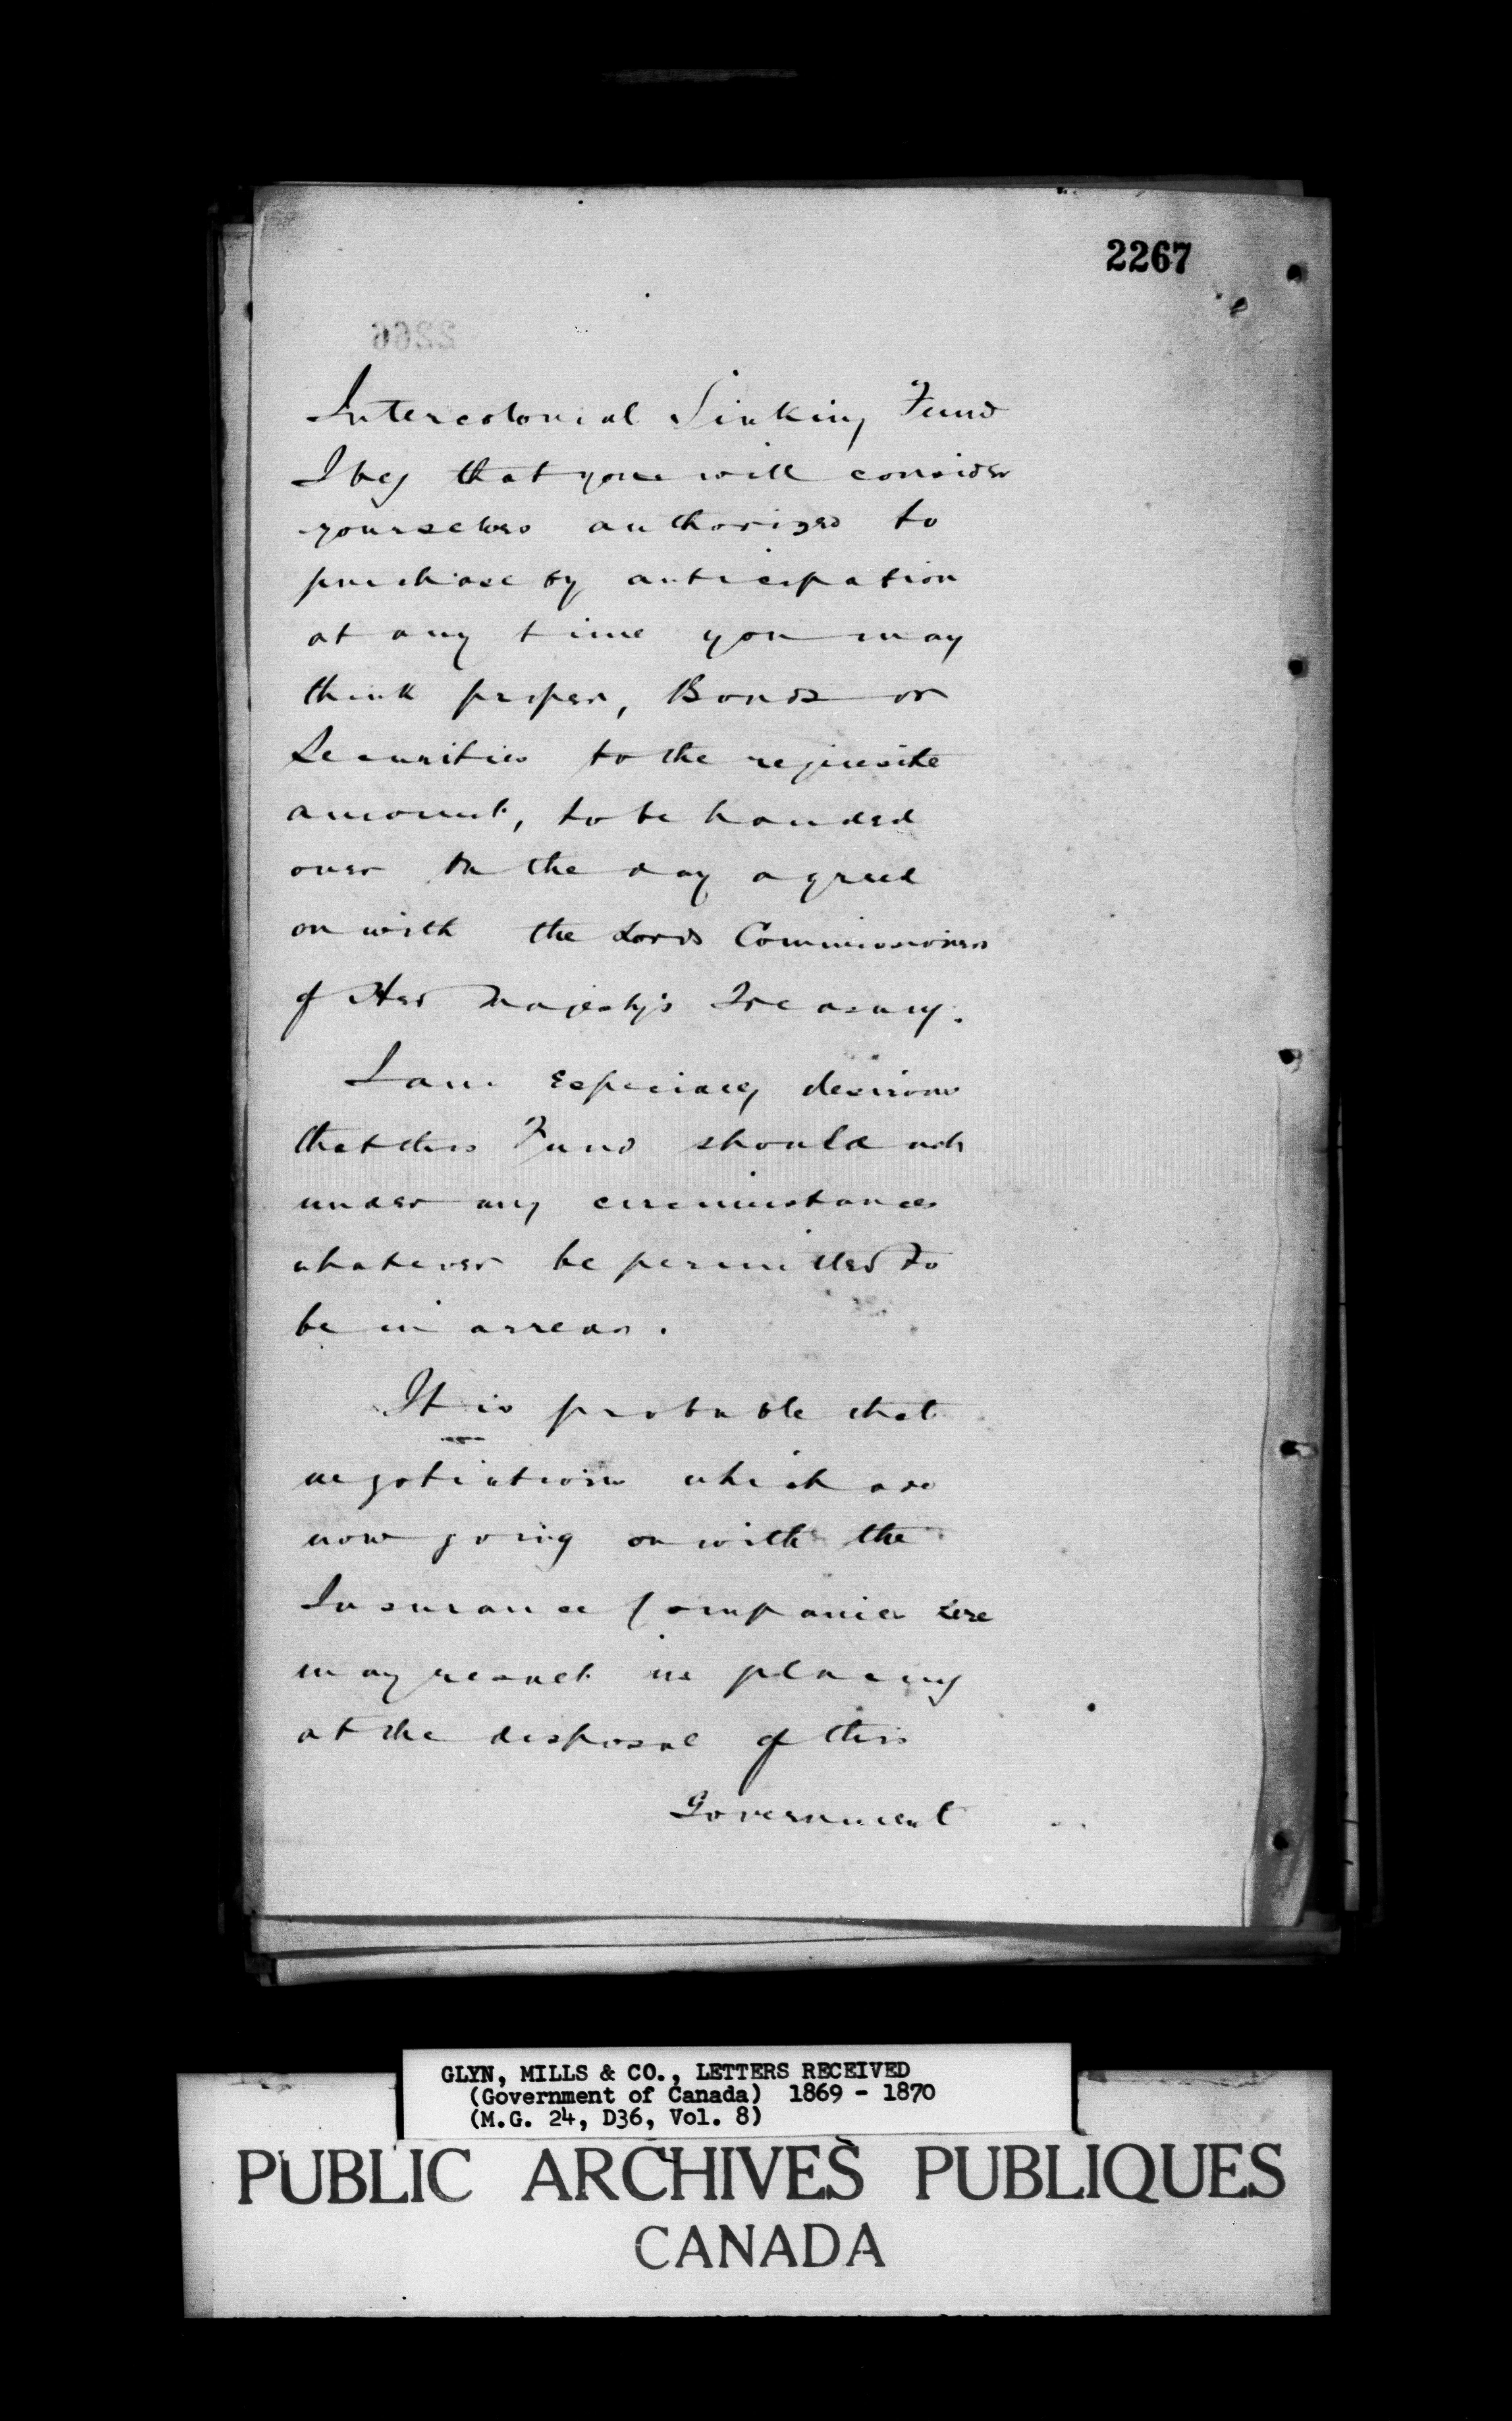 2267
2266
Intercolonial Sinking Fund
I beg that you will consider
yourselves authorized to
purchase by anticipation
at any time you may
think proper, Bonds or
Securities to the requisite
amount, to be handed
over on the day agreed
on with the Lords Commissioners
of Her Majesty's Treasury.
I am especially desirous
that this Fund should not
under any circumstances
whatever be permitted to
be in arrear.
It is probable that
negotiations which are
now going on with the
Insurance Companies here
may result in placing
at the disposal of this
Government
GLYN, MILLS & CO., LETTERS RECEIVED
(Government of Canada) 1869 - 1870
(M.G. 24, D36, Vol. 8)
PUBLIC ARCHIVES PUBLIQUES
CANADA